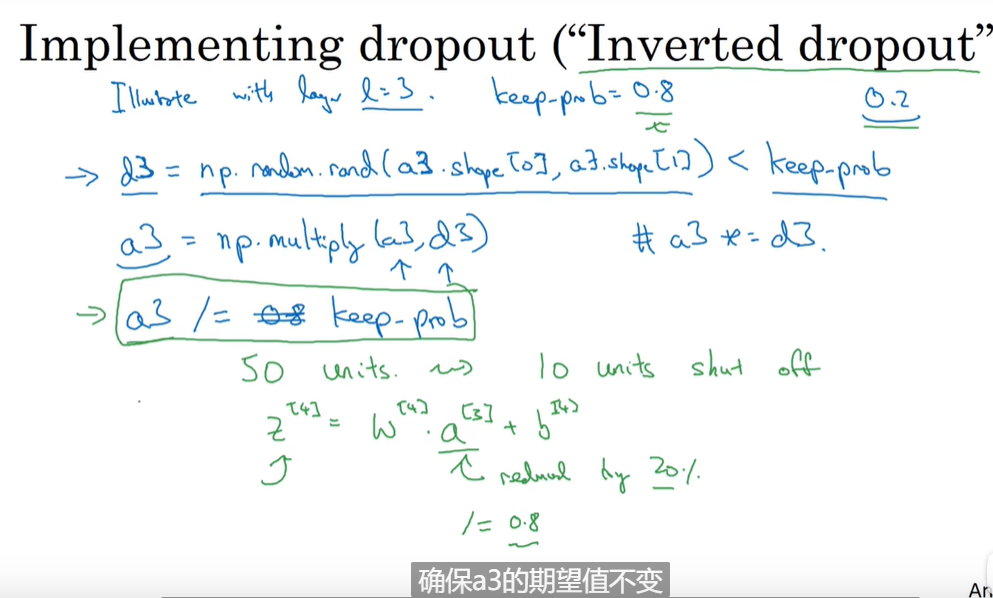 Implementing dropout ("Inverted dropout"
Illustrate with layer l=3. keep-prob= 0.8 0.2
x
→ d3 = np.random.rand(a3.shape[0], a3.shape[1]) < keep-prob
a3 = np.multiply(a3, d3) # a3 *= d3.
↑ ↑
→ a3 /= 0.8 keep-prob
50 units. ⇝ 10 units shut off
z[4] = w[4] . a[3] + b[4]
reduced by 20%.
/= 0.8
确保a3的期望值不变
An